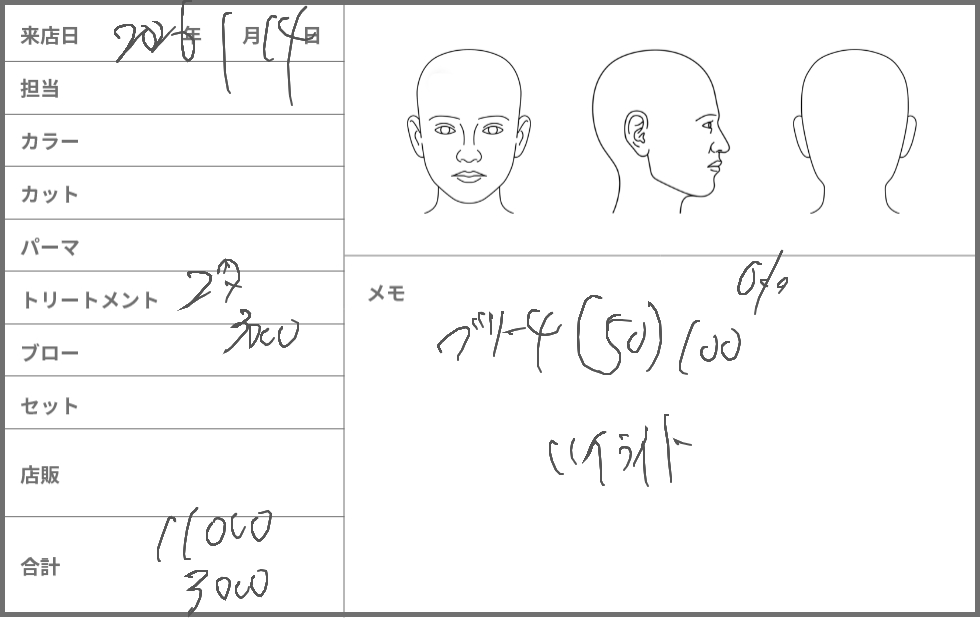 来店日 2026年 1月14日
担当
カラー
カット
パーマ
トリートメント
3000
ブロー
セット
店販
11000
合計
3000
メモ
0%
ブリーチ(50)100
ハイライト